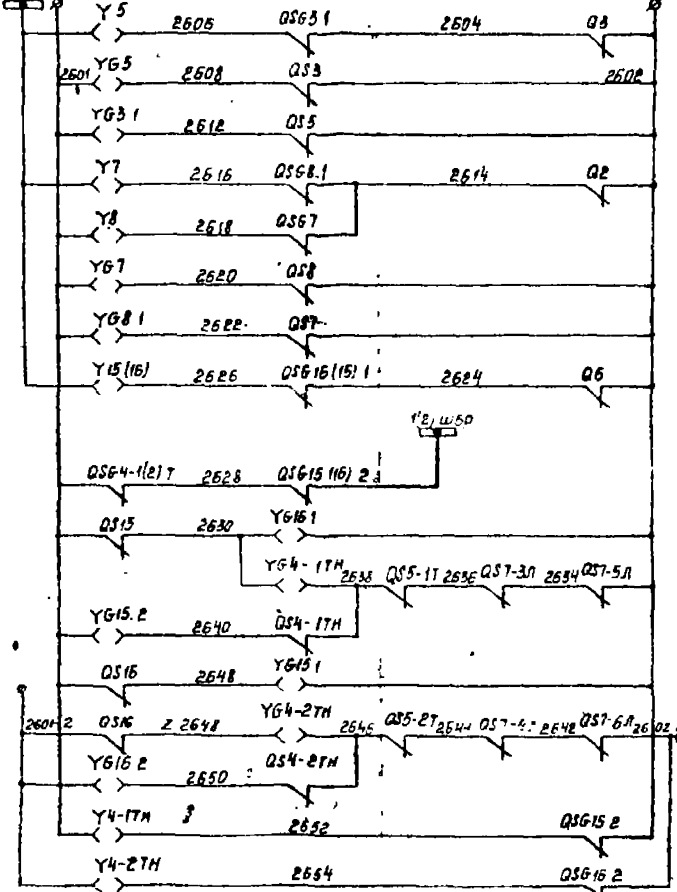 Y5 2606 QSG3 1 2604 Q3
2601 YG5 2608 QS3 2602
YG3 1 2612 QS5
Y7 2616 QSG8.1 2614 Q2
Y8 2618 QSG7
YG7 2620 QS8
YG8 1 2622 QS7
Y15(16) 2626 QSG16(15) 1 2624 Q6
QSG4-1(2) T 2628 QSG15(16) 2
QS15 2630 YG16 1
YG4-1TH 2638 QS5-1T 2636 QS7-3Л 2634 QS7-5Л
YG15.2 2640 QS4-1TH
QS16 2648 YG15 1
2601-2 QS16 2 2648 YG4-2TH 2646 QS5-2T 2644 2642 QS7-6Л 2602
YG16 2 2650 QS4-2TH
Y4-1TH 2652 QSG15 2
Y4-2TH 2654 QSG16 2